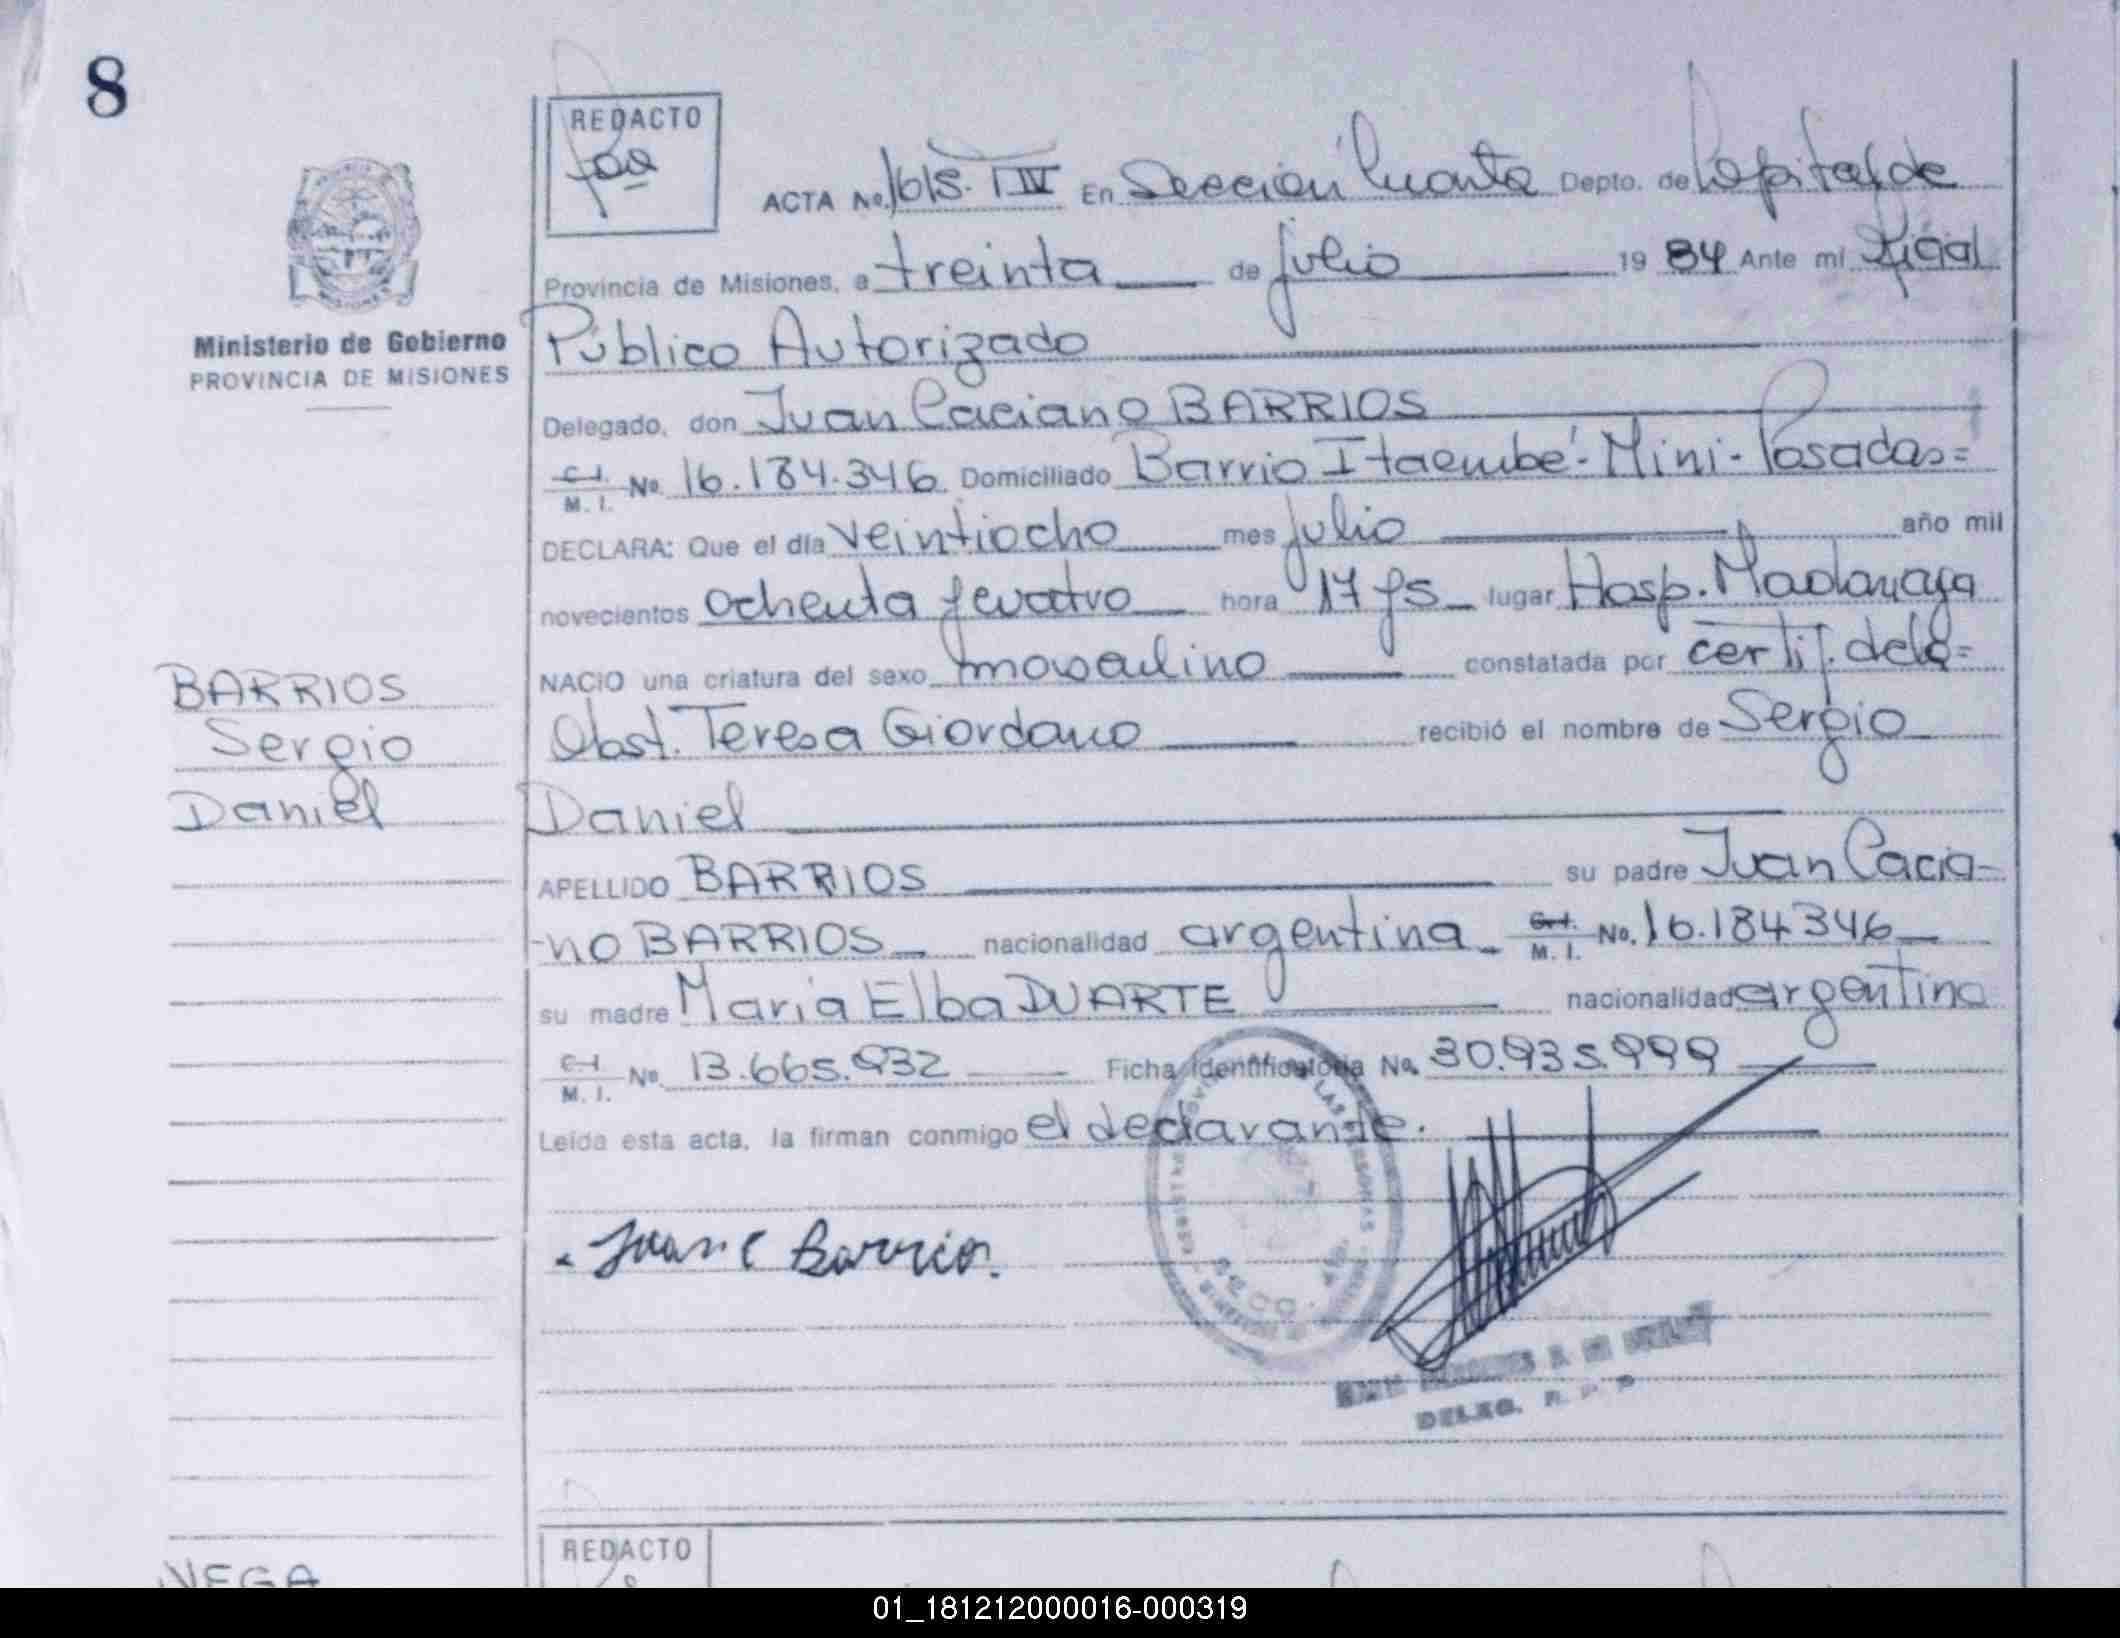 8
REDACTO
ACTA No. 1615. T IV En Sección Cuarta Depto. de Capital de
Provincia de Misiones, a treinta de julio 1984 Ante mi Oficial
Público Autorizado
Ministerio de Gobierno
PROVINCIA DE MISIONES
Delegado, don Juan Caciano BARRIOS
C.I. M. I. No. 16.184.346 Domiciliado Barrio Itaembé-Mini-Posadas=
DECLARA: Que el día veintiocho mes julio año mil
novecientos ochenta y cuatro hora 17 y 5 lugar Hosp. Madariaga
NACIO una criatura del sexo masculino constatada por certif. dela=
Obst. Teresa Giordano recibió el nombre de Sergio
Daniel
BARRIOS
Sergio
Daniel
APELLIDO BARRIOS su padre Juan Cacia-
-no BARRIOS nacionalidad argentina M. I. No. 16.184346
su madre Maria Elba DUARTE nacionalidad argentina
C.I. M. I. No. 13.665.932 Ficha Identificatoria No. 30.935.999
Leída esta acta, la firman conmigo el declarante.
Juan C Barrios.
DELEG. R. P. P
REDACTO
VEGA
01_181212000016-000319